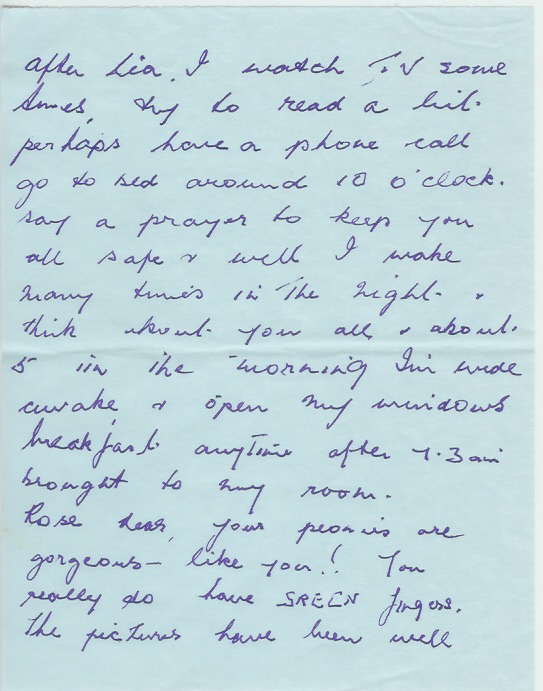 after tea, I watch TV some
times, try to read a bit.
perhaps have a phone call
go to bed around 10 o'clock.
say a prayer to keep you
all safe & well I wake
many times in the night. &
think about you all & about
5 in the morning Im wide
awake, & open my windows
breakfast anytime after 7.30am
brought to my room.
Rose dear, your peonies are
gorgeous - like you!! You
really do have GREEN fingers.
The pictures have been well